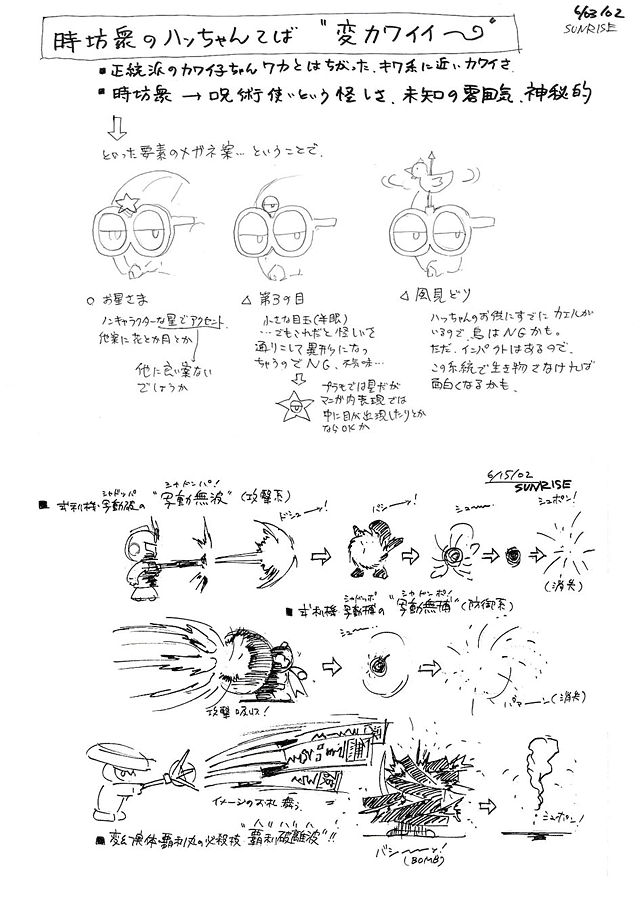 6/03/02
SUNRISE
時坊衆のハッちゃんてば "変カワイイ〜"
■正統派のカワイ子ちゃんワカとはちがった、キワ系に近いカワイさ
■時坊衆 → 呪術使いという怪しさ、未知の雰囲気、神秘的
といった要素のメガネ案… ということで、
○ お星さま
ノンキャラクターな星でアクセント
他案に花とか月とか
他に良い案ない
でしょうか
△ 第3の目
小さな目玉(半眼)
…でもこれだと怪しいを
通りこして異形になっ
ちゃうのでNG、不気味…
プラモでは星だが
マンガ内表現では
中に目が出現したりとか
ならOKか
△ 風見どり
ハッちゃんのお供にすでにカエルが
いるので、鳥はNGかも。
ただ、インパクトはあるので、
この系統で生き物でなければ
面白くなるかも。
6/15/02
SUNRISE
シャドッパ
シャドンパ!
■ 式利機・写動破の "写動無波" (攻撃系)
ドシューッ!
バシーッ!
シューー
シュポン!
(消失)
シャドッポ
シャドンポ!
■ 式利機・写動捕の "写動無捕" (防御系)
シュー
攻撃吸収!
パァーーン(消失)
イメージのお札舞う
バシーーッ!
(BOMB)
シュポン!
ハリハリハ
■ 変幻黒体・覇利丸の必殺技 "覇利破離波"!!